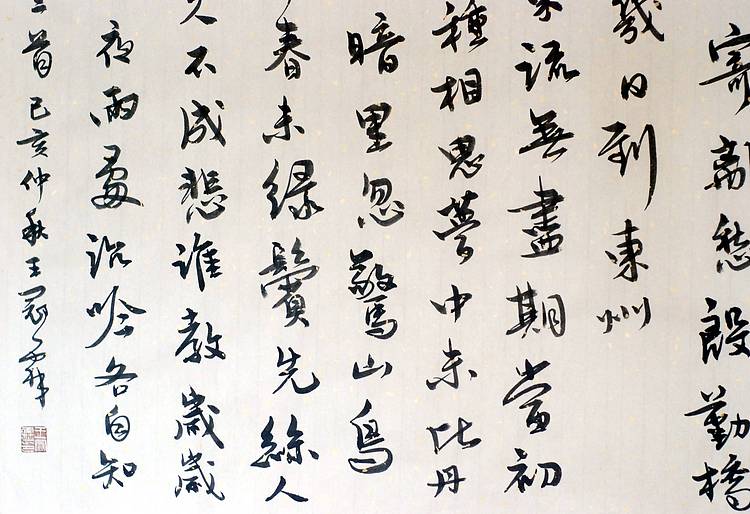 寄離愁殷勤橋
幾日到東州
流無盡期當初
種相思夢中未比丹
暗里忽驚山鳥
春未綠鬢先絲人
久不成悲誰教歲歲
夜兩處沉吟各自知
首己亥仲秋王